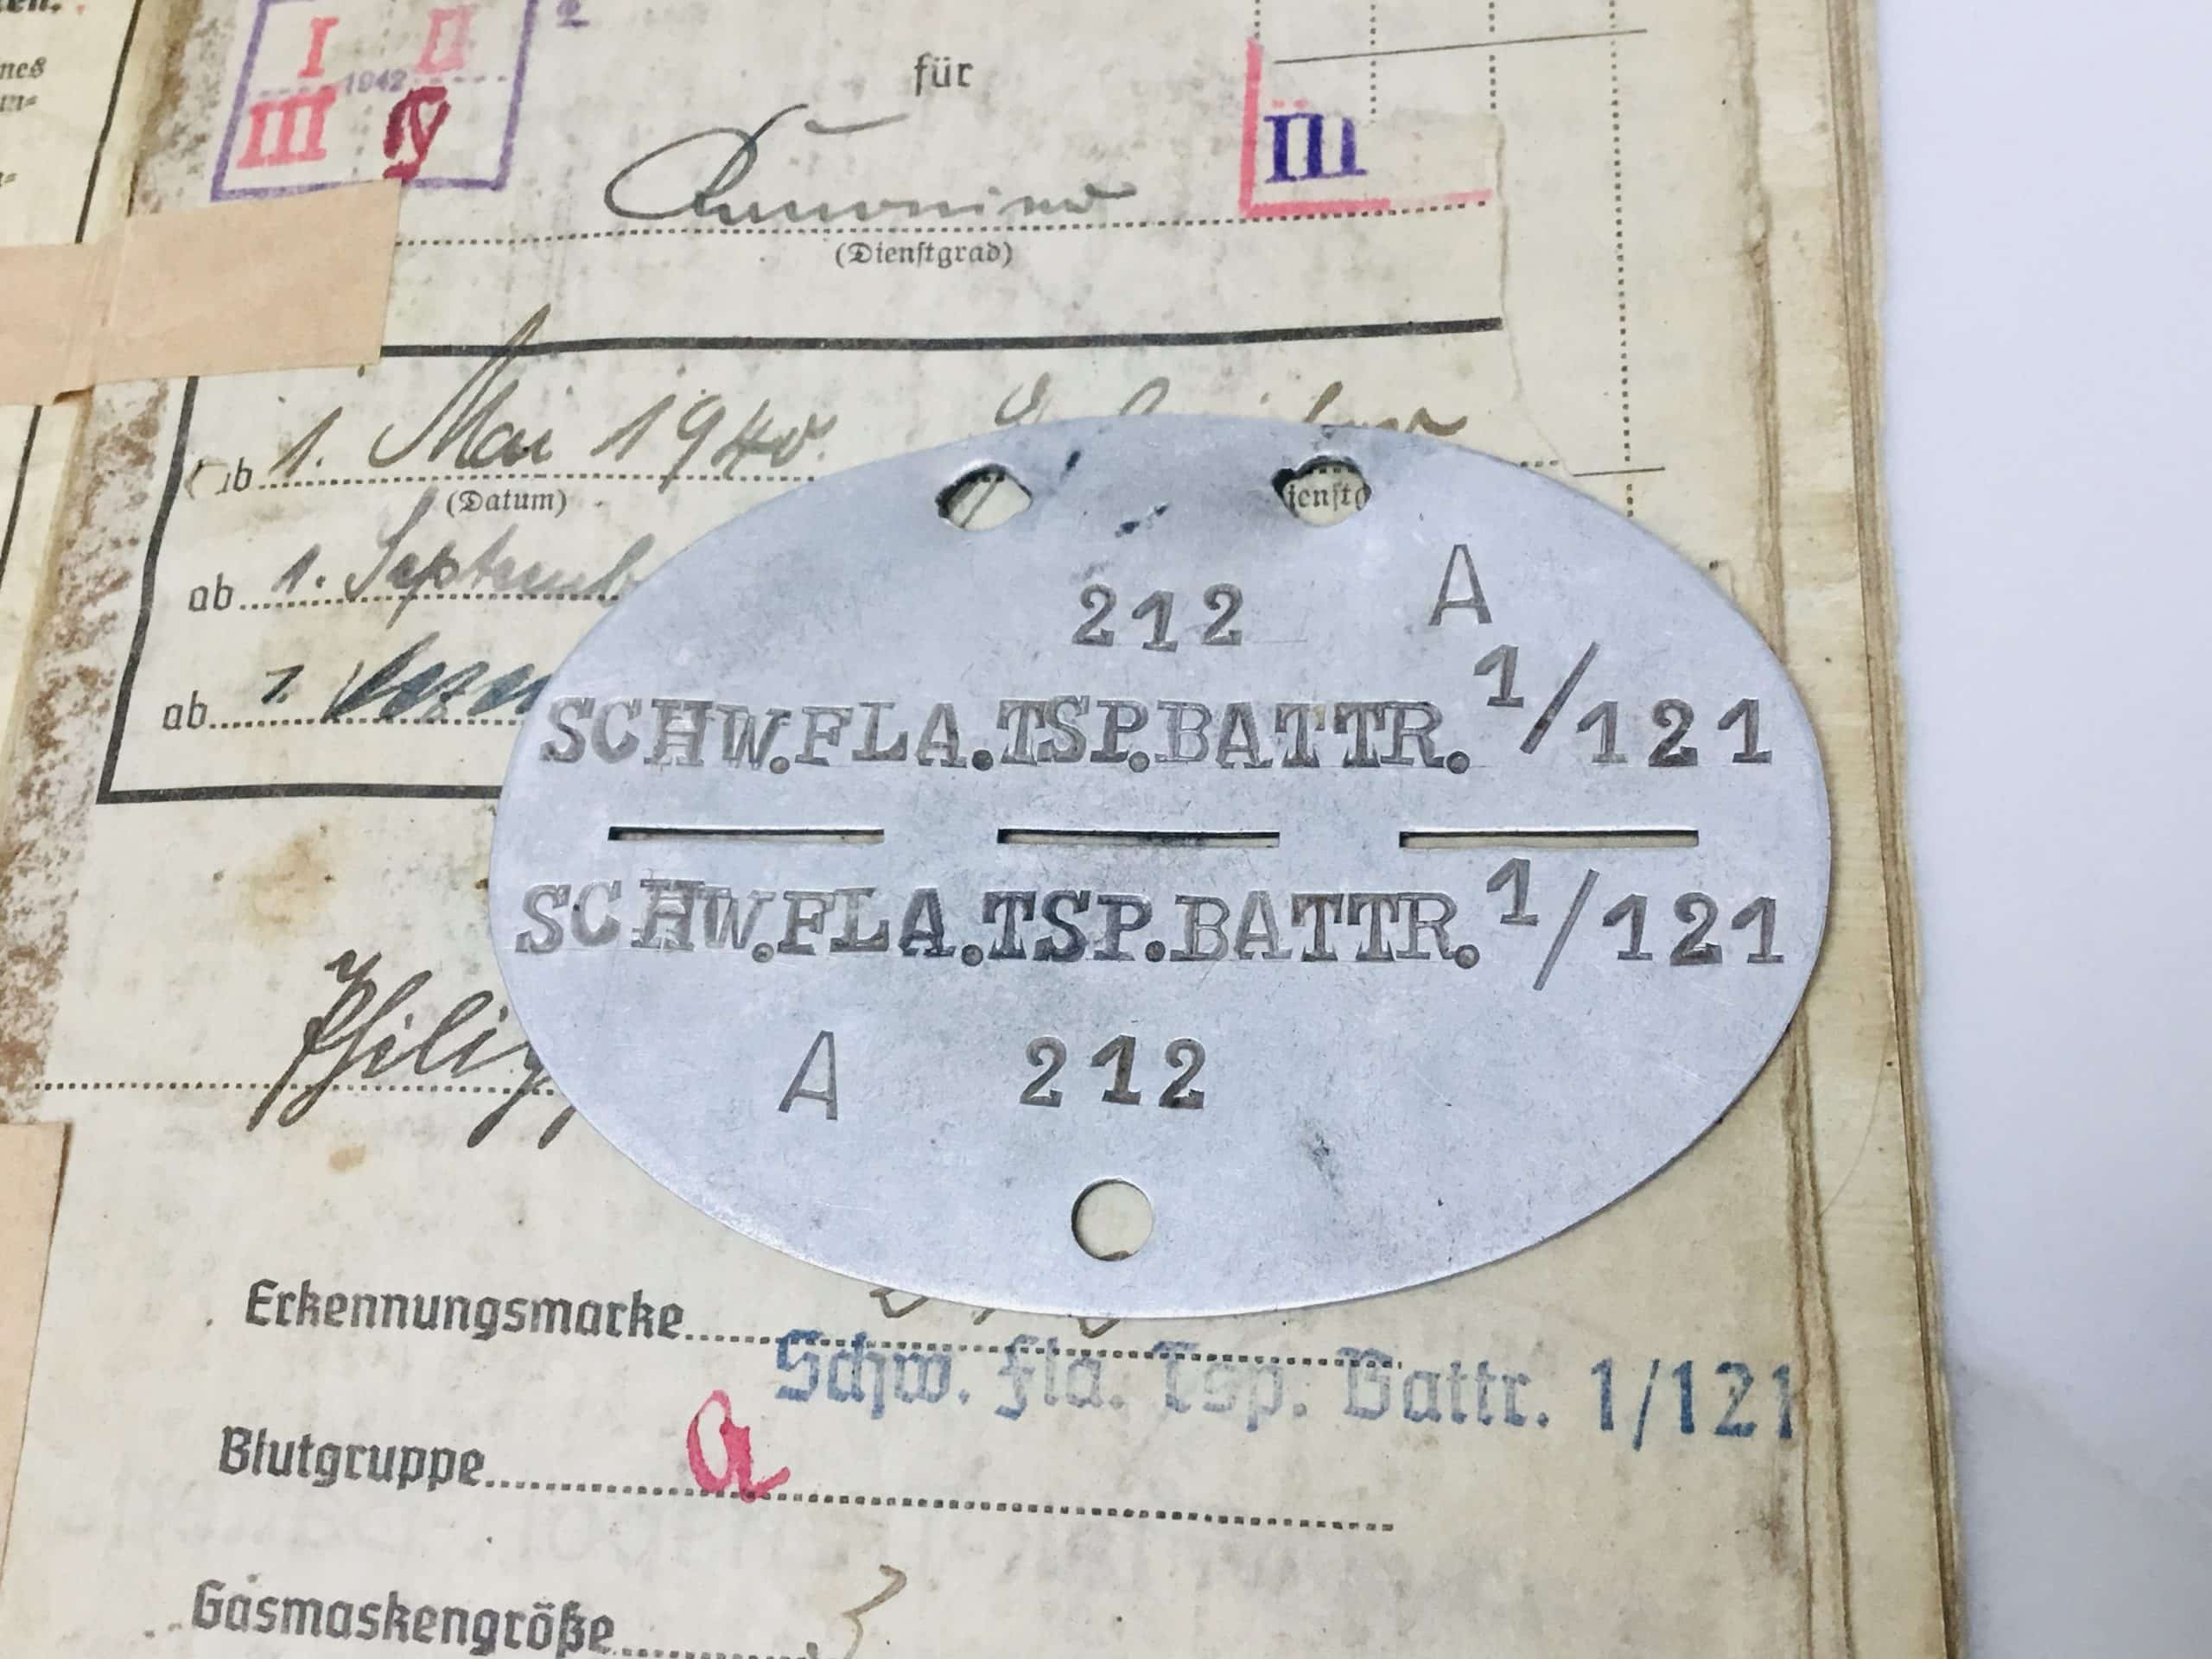 I II
1942
III IV
für
III
(Dienstgrad)
ab 1. Mai 1940.
(Datum)
ienstg
ab 1. Septemb
ab 1.
212 A
SCHW.FLA.TSP.BATTR. 1/121
SCHW.FLA.TSP.BATTR. 1/121
A 212
Erkennungsmarke
Schw. Fla. Tsp. Battr. 1/121
Blutgruppe A
Gasmaskengröße 3